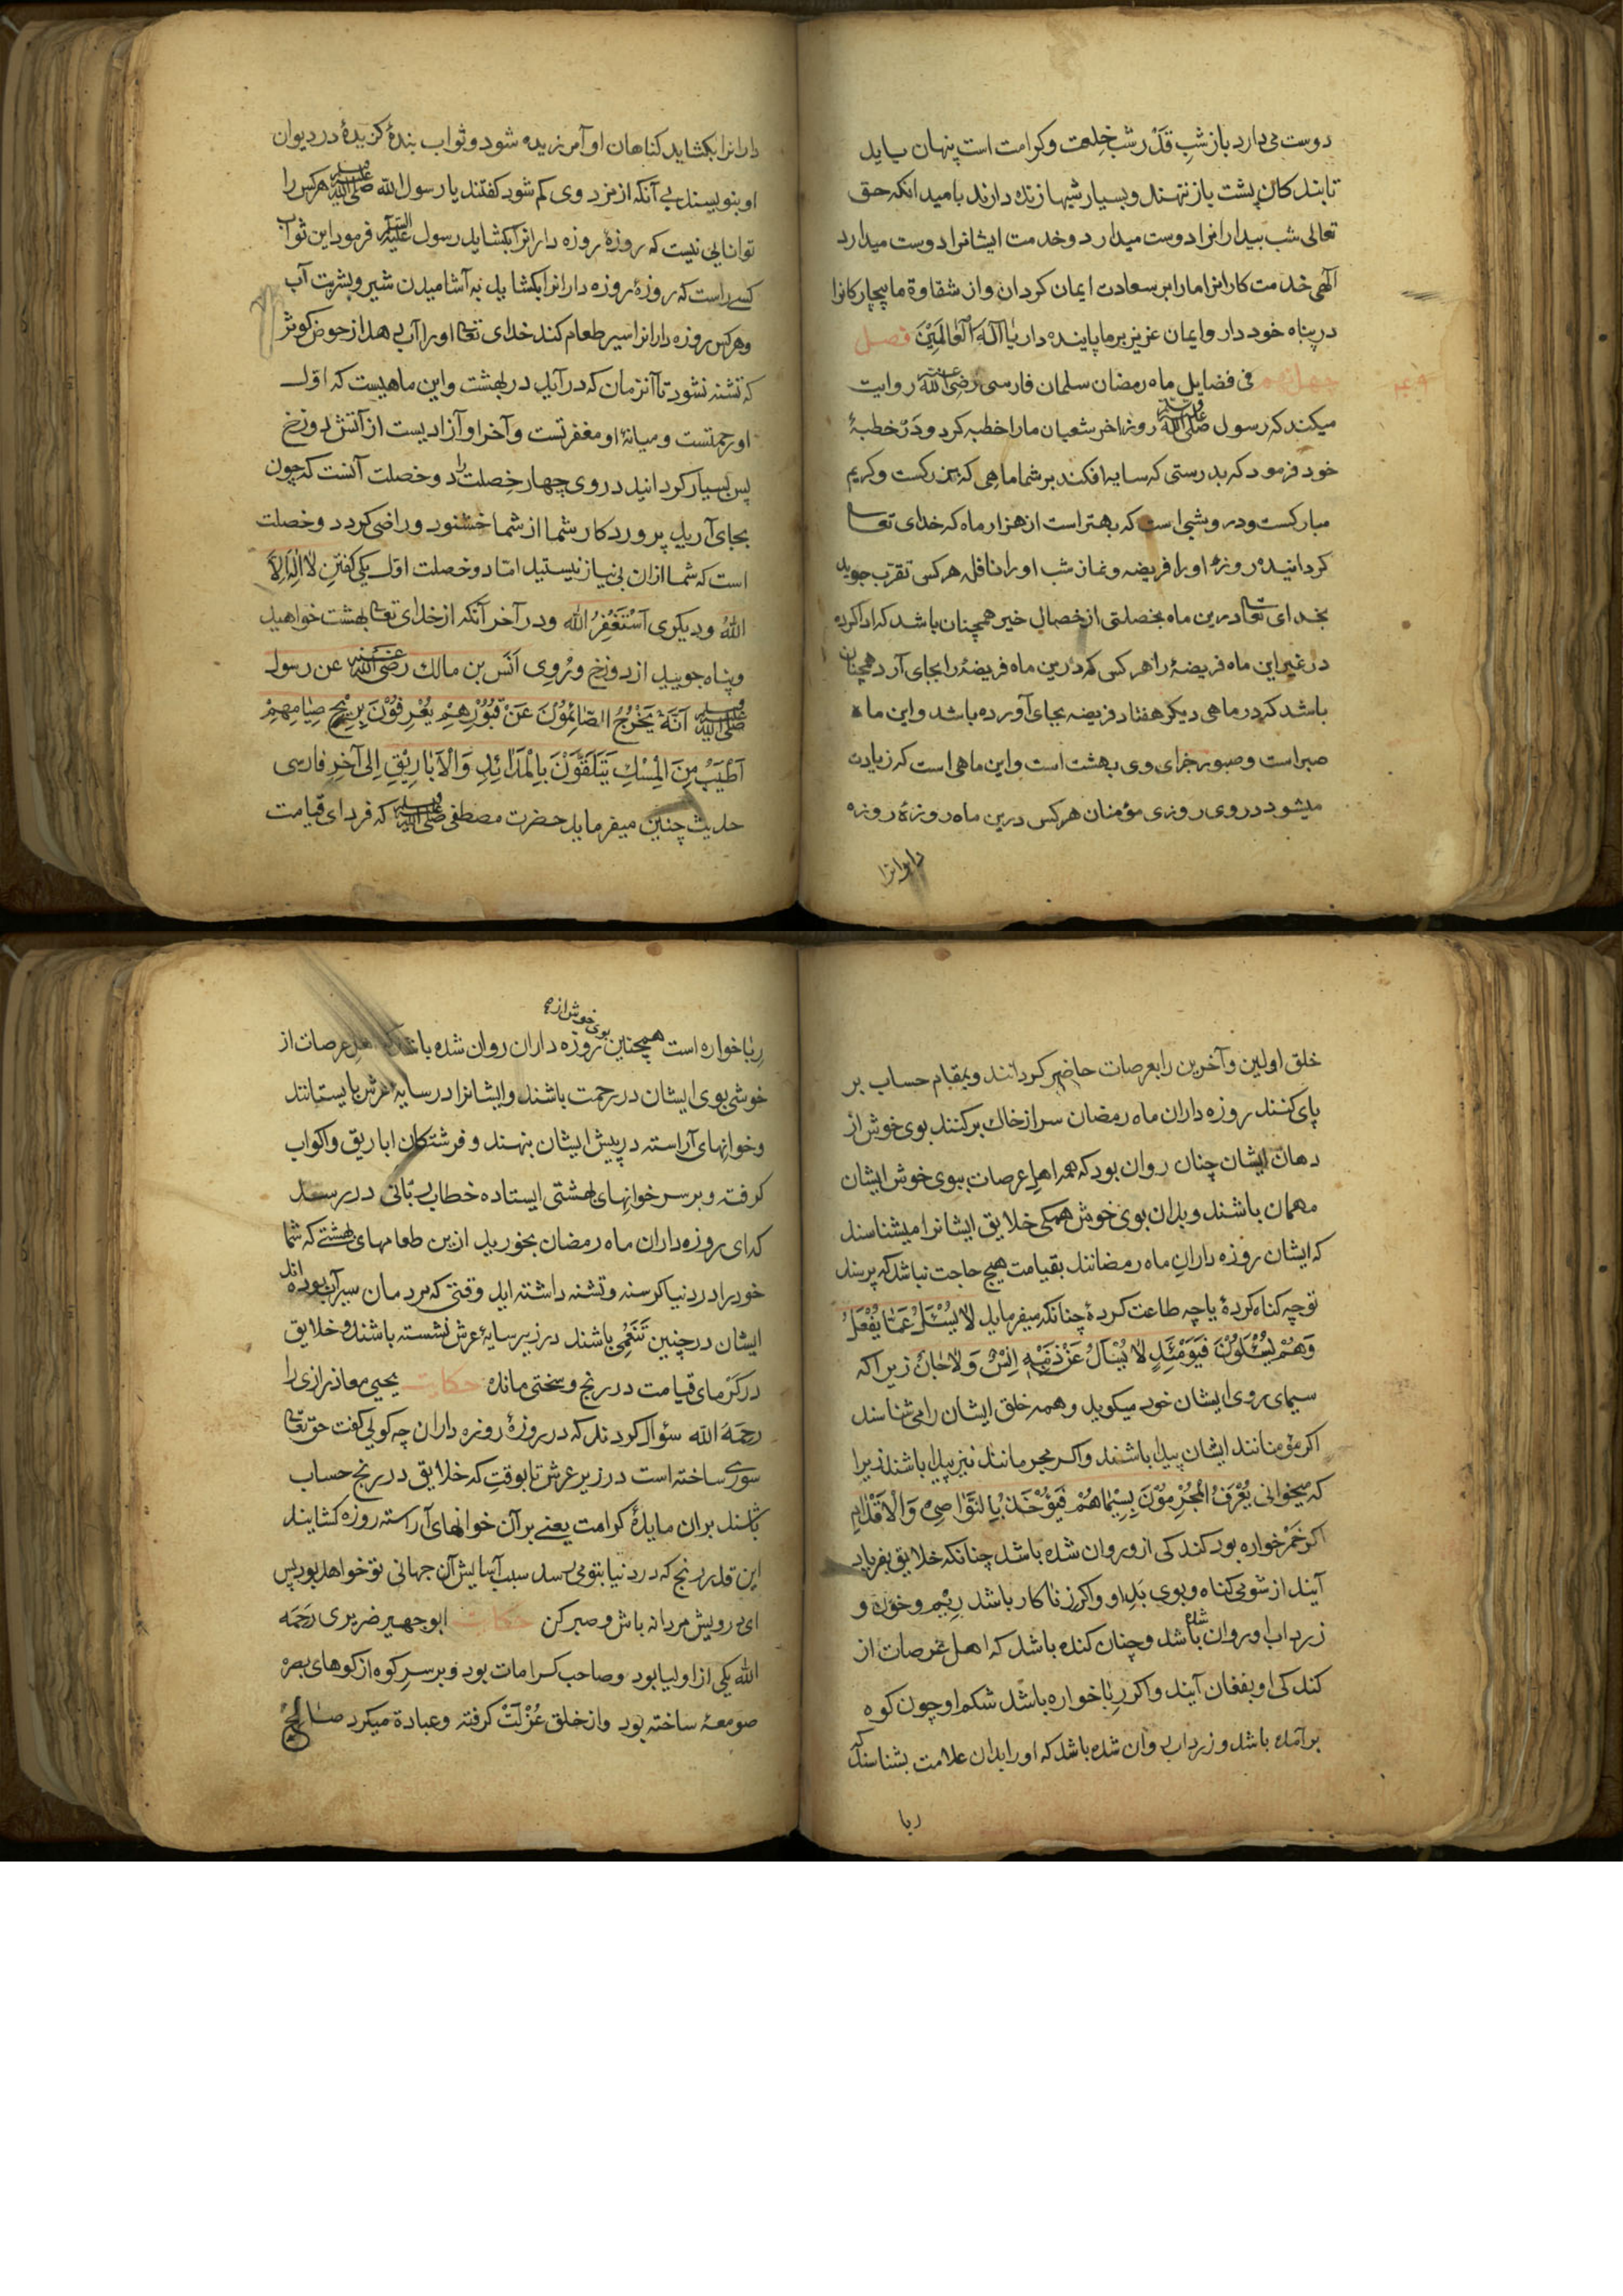 دوست می دارد باز شبِ قَدْر شب خِلعت و کرامت است پنهان باید
تا بندکان پشت باز ننهند و بسیار شبها زنده دارند بامید انکه حق
تعالی شب بیدارانرا دوست میدارد و خدمت ایشانرا دوست میدارد
الٓهی خدمت کارانرا مارا بر سعادت ایمان کردان و از شقاوة ما بیچارکانرا
در پناه خود دار و ایمان عزیز بر ما پاینده دار یا اِلٓهَ الْعٰالَمِیْنَ فصل
چهل نهم فی فضایل ماه رمضان سلمان فارسی رَضِیَ اللّٰه عنه روایت
میکند که رسول صلی اللّٰه علیه وسلم روز اخر شعبان مارا خطبه کرد و دَرْ خطبهٔ
خود فرمود که بدرستی که سایه افکند بر شما ماهی که بزرکست و کریم
مبارکست و درو شبی است که بهتر است از هزار ماه که خدای تعالی
کردانیده روزهٔ او را فریضه و نماز شب او را نافله هر کس تقرّب جوید
بخدای تعالی درین ماه بخصلتی از خصالِ خیر همچنان باشد که ادا کرده
در غیر این ماه فریضهٔ را هر کسی که درین ماه فریضهٔ را بجای آرد همچنان
باشد که در ماهی دیکر هفتاد فریضه بجای آورده باشد و این ماه
صبر است و صبور جزای وی بهشت است و این ماهی است که زیادت
میشود در وی روزی مؤمنان هر کس درین ماه روزهٔ روزه
دارانرا
دارانرا بکشاید کناهان او آمرزیده شود و ثواب بندهٔ کزیدهٔ در دیوان
او بنویسند بی آنکه از مزد وی کم شود کفتند یا رسول اللّه صلی اللّٰه علیه وسلم هر کس را
توانایی نیست که روزهٔ روزه دارانرا بکشاید رسول علیه السلام فرمود این ثواب
کسی راست که روزهٔ روزه دارانرا بکشاید به آشامیدن شیر و بشربت آب
و هر کس روزه دارانرا سیر طعام کند خدای تعالی او را آب دهد از حوض کوثر
که تشنه نشود تا آنزمان که در آید در بهشت و این ماهیست که اوّل
او رحمتست و میانهٔ او مغفرتست و آخر او آزادیست از آتش دوزخ
پس بسیار کردانید در وی چهار خِصلت را دو خصلت آنست که چون
بجای آرید پروردکار شما از شما خشنود و راضی کردد و دو خصلت
است که شما ازان بی نیاز نیستید امّا دو خصلت اوّل یکی کفتن لٰا اِلٰهَ اِلَّا
اللّٰهُ و دیکری اَسْتَغْفِرُ اللّٰه و در آخر آنکه از خدای تعالی بهشت خواهید
و پناه جویید از دوزخ و یُرْوی اَنَس بن مالك رضی اللّٰه عنه عن رسول
صلی اللّٰه علیه وسلم اَنَّهُ یَخْرُجُ الصَّائِمُوْنَ عَنْ قُبُوْرِهِمْ یُعْرِفُوْنَ بِرِیْحِ صِیَامِهِمْ
اَطْیَبُ مِنَ الْمِسْكِ یَتَلَقَّوْنَ بِالْمَوَائِدِ وَ الْاَبَارِیْقِ اِلیٰ آخِرِ فارسی
حدیث چنین میفرماید حضرت مصطفی صلی اللّٰه علیه وسلم که فردای قیامت
خلق اولین و آخرین را بعرصات حاضر کردانند و بمقام حساب بر
پای کنند روزه داران ماه رمضان سر از خاك بر کنند بوی خوش از
دهان ایشان چنان روان بود که همه اهلِ عرصات ببوی خوش ایشان
مهمان باشند و بدان بوی خوش همکی خلایق ایشانرا میشناسند
که ایشان روزه دارانِ ماه رمضانند بقیامت هیچ حاجت نباشد که پرسند
تو چه کناه کردهٔ یا چه طاعت کردهٔ چنانکه میفرماید لٰا یُسْئَلُ عَمَّا یَفْعَلُ
وَهُمْ یُسْئَلُوْنَ فَیَوْمَئِذٍ لٰا یُسْأَلُ عَنْ ذَنْبِهِ اِنْسٌ وَ لٰا جَانٌّ زیرا که
سیمای روی ایشان خود میکوید و همه خلق ایشان را می شناسند
اکر مؤمنانند ایشان پیدا باشند و اکر مجرمانند نیز پیدا باشند زیرا
که میخوانی یُعْرَفُ الْمُجْرِمُوْنَ بِسِیْمَاهُمْ فَیُؤْخَذُ بِالنَّوَاصِیْ وَ الْاَقْدَامِ
اکر خَمْر خواره بود کند کی ازو روان شده باشد چنانکه خلایق بفریاد
آیند از شومی کناه و بوی بَدِ او و اکر زنا کار باشد رِیْم و خون و
زرداب او روان شده باشد و چنان کنده باشد که اهل عَرصات از
کند کی او بفغان آیند و اکر رِبٰا خواره باشد شکم او چون کوه
بر آمده باشد و زرداب روان شده باشد که او را بدان علامت بشناسند که
ربا
رِبٰا خواره است همچنین بوی خوش از روزه داران روان شده باشد که اهل عرصات از
خوشی بوی ایشان در رحمت باشند و ایشانرا در سایهٔ عرش بایستانند
و خوانهای آراسته در پیش ایشان بنهند و فرشتکان اباریق و اکواب
کرفته و بر سر خوانهای بهشتی ایستاده خطاب ربّانی در رسد
که ای روزه داران ماه رمضان بخورید ازین طعامهای بهشتی که شما
خود را در دنیا کرسنه و تشنه داشته اید وقتی که مردمان سیر آب بوده اند
ایشان در چنین تَنَعُّمی باشند در زیر سایهٔ عرش نشسته باشند و خلایق
در کَرْمای قیامت در رنج و سختی مانده حکایت یحیی معاذ رازی را
رحمة اللّه سؤال کردند که در روزهٔ روزه داران چه کویی کفت حق تعالی
سوری ساخته است در زیر عرش تا بوقتِ که خلایق در رنج حساب
باشند بران مایدهٔ کرامت یعنی بر آن خوانهای آراسته روزه کشایند
این قدر رنج که در دنیا بتو می رسد سبب آسایش آن جهانی تو خواهد بود پس
ای درویش مردانه باش و صبر کن حکایت ابو جهیر ضریری رَحِمَهُ
اللّه یکی از اولیا بود و صاحب کرامات بود و بر سرِ کوه از کوهای بصره
صومعهٔ ساخته بود و از خلق عُزْلَتْ کرفته و عبادة میکرد صالح